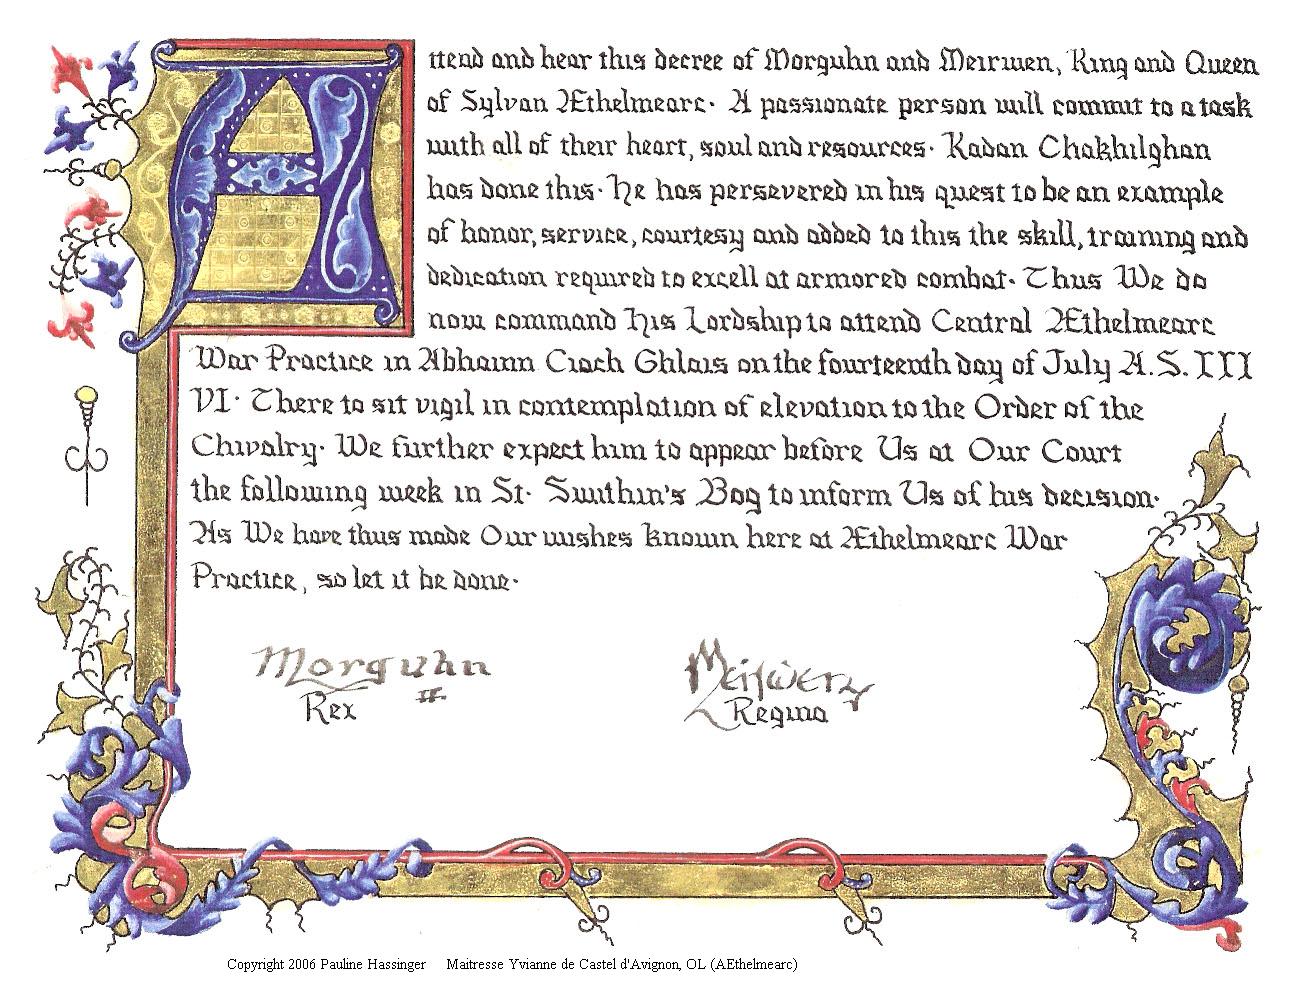 Attend and hear this decree of Morguhn and Meirwen, King and Queen
of Sylvan Æthelmearc. A passionate person will commit to a task
with all of their heart, soul and resources. Kadan Chakhilghan
has done this. He has persevered in his quest to be an example
of honor, service, courtesy and added to this the skill, training and
dedication required to excell at armored combat. Thus We do
now command His Lordship to attend Central Æthelmearc
War Practice in Abhainn Ciach Ghlais on the fourteenth day of July A.S. III
VI. There to sit vigil in contemplation of elevation to the Order of the
Chivalry. We further expect him to appear before Us at Our Court
the following week in St. Swithin's Bog to inform Us of his decision.
As We have thus made Our wishes known here at Æthelmearc War
Practice, so let it be done.
Morguhn II
Rex
Meirwen
Regina
Copyright 2006 Pauline Hassinger Maitresse Yvianne de Castel d'Avignon, OL (AEthelmearc)